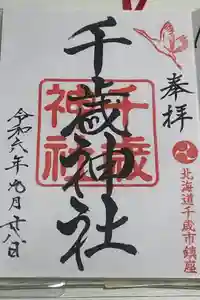 奉拝
北海道千歳市鎮座
千歳神社
千歳神社
令和六年九月廿八日